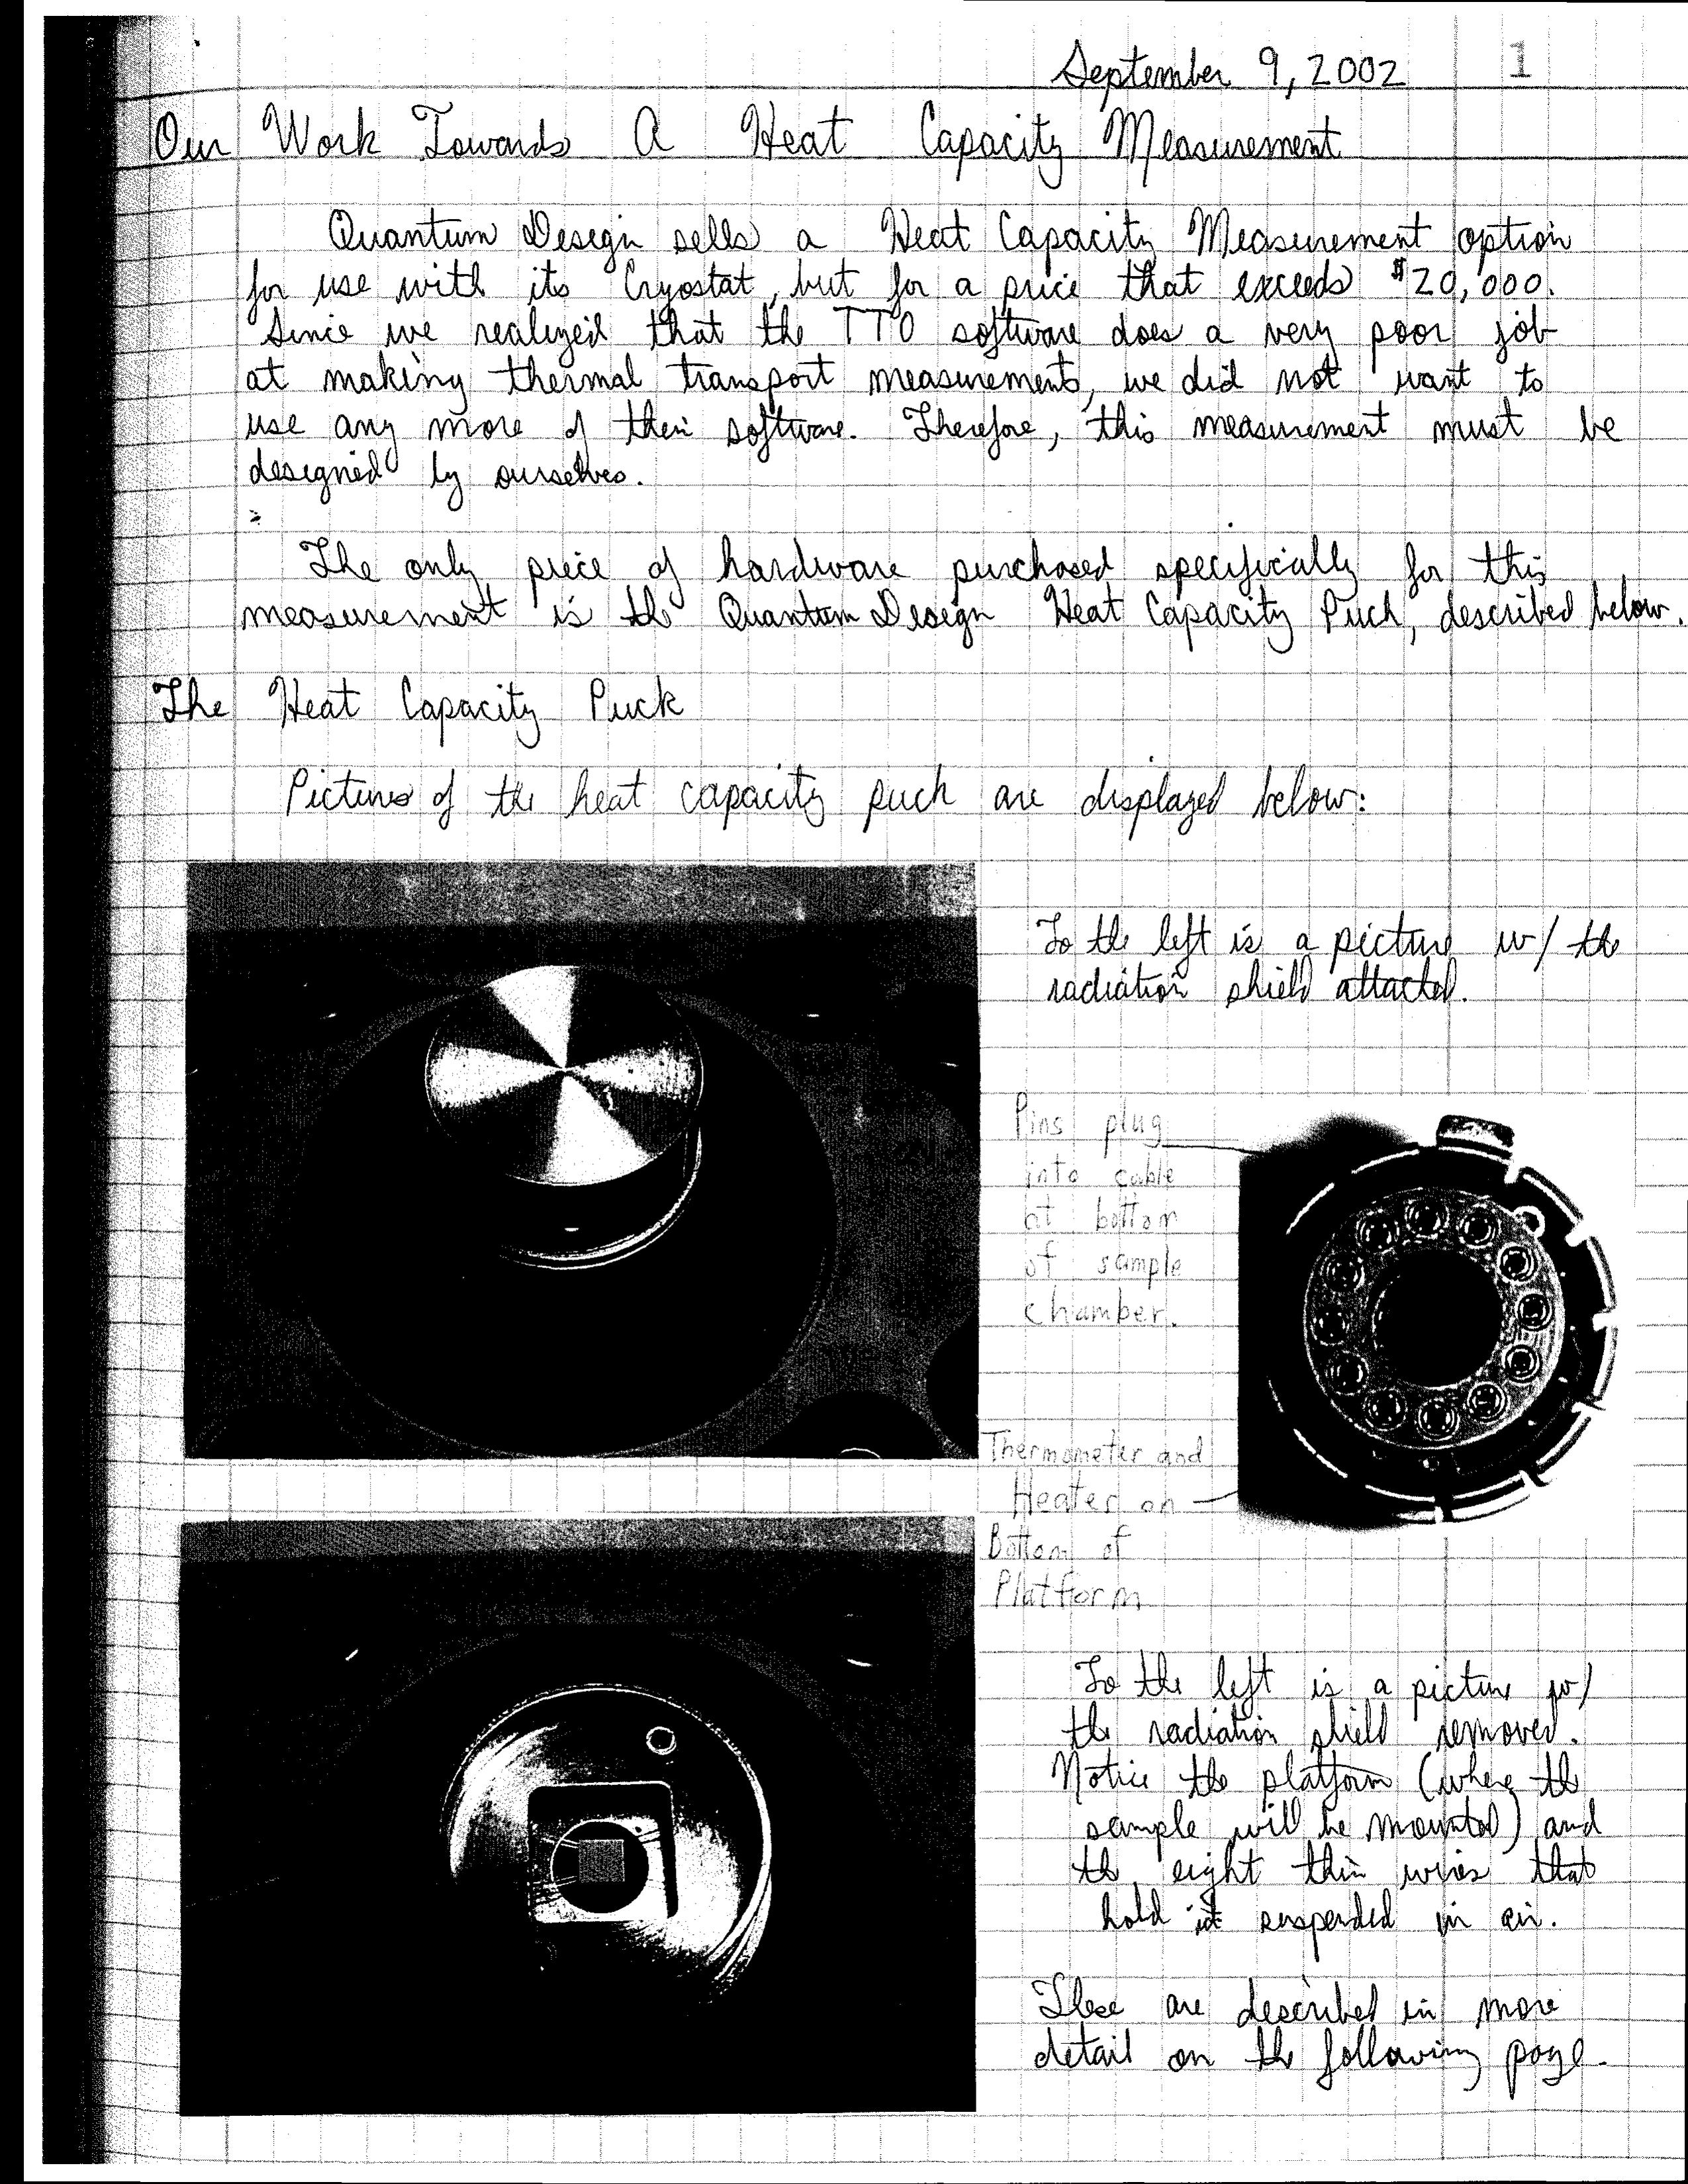 September 9, 2002
1
Our Work Towards A Heat Capacity Measurement
Quantum Design sells a Heat Capacity Measurement option
for use with its Cryostat, but for a price that exceeds $20,000.
Since we realized that the TTO software does a very poor job
at making thermal transport measurements, we did not want to
use any more of their software. Therefore, this measurement must be
designed by ourselves.
The only piece of hardware purchased specifically for this
measurement is the Quantum Design Heat Capacity Puck, described below.
The Heat Capacity Puck
Pictures of the heat capacity puck are displayed below:
To the left is a picture w/ the
radiation shield attached.
Pins plug
into cable
at bottom
of sample
chamber.
Thermometer and
Heater on
Bottom of
Platform
To the left is a picture w/
the radiation shield removed.
Notice the platform (where the
sample will be mounted) and
the eight thin wires that
hold it suspended in air.
These are described in more
detail on the following page.